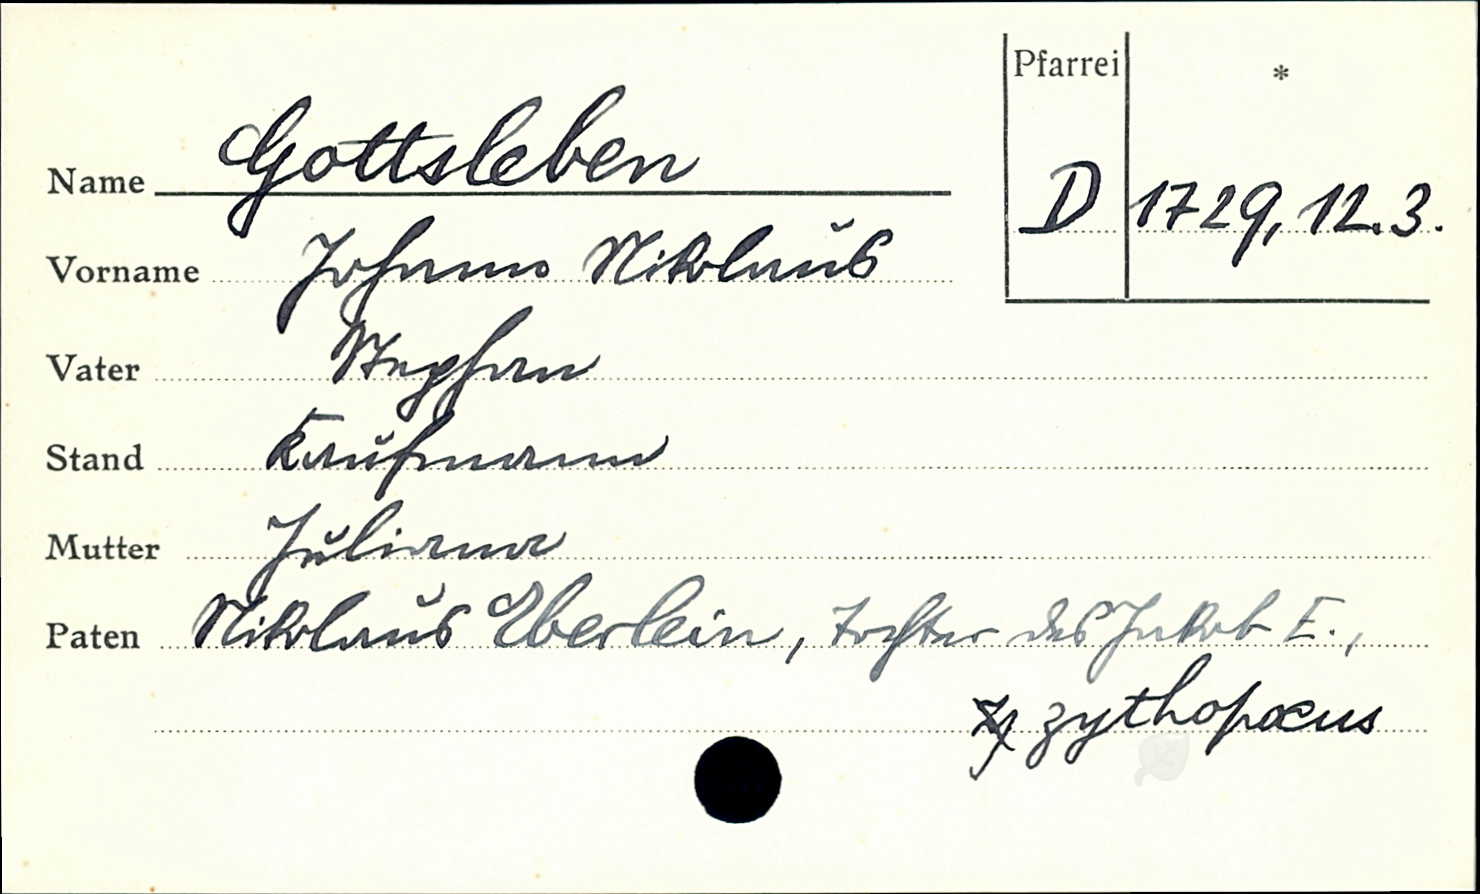 Pfarrei *
Name Gottsleben
D 1729, 12.3.
Vorname Johann Nikolaus
Vater Stephan
Stand Kaufmann
Mutter Juliana
Paten Nikolaus Eberlein, Tochter des Jakob E.,
zythopoeus